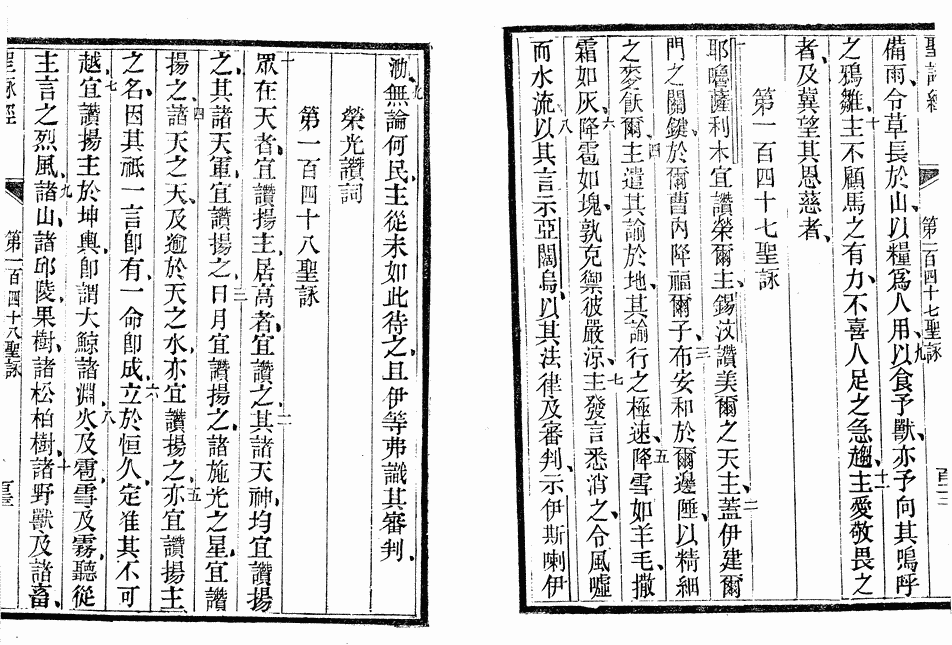 聖詠經
第一百四十七聖詠
備雨、令草長於山、以糧爲人用、九以食予獸、亦予向其鳴呼
之鴉雛、十主不顧馬之有力、不喜人足之急趨、十一主愛敬畏之
者、及冀望其恩慈者、
第一百四十七聖詠
一耶嚕薩利木宜讚榮爾主、錫汶讚美爾之天主、二蓋伊建爾
門之關鍵、於爾曹內降福爾子、三布安和於爾邊陲、以精細
之麥飫爾、四主遣其諭於地、其諭行之極速、五降雪如羊毛、撒
霜如灰、六降雹如塊、孰克禦彼嚴涼、七主發言悉消之、令風噓
而水流、八以其言示亞闊烏、以其法律及審判、示伊斯喇伊
泐、九無論何民、主從未如此待之、且伊等弗識其審判、
榮光讚詞
第一百四十八聖詠
一眾在天者、宜讚揚主、居高者、宜讚之、二其諸天神、均宜讚揚
之、其諸天軍、宜讚揚之、三日月宜讚揚之、諸施光之星、宜讚
揚之、四諸天之天、及逾於天之水、亦宜讚揚之、五亦宜讚揚主
之名、因其祇一言卽有、一命卽成、六立於恒久、定准其不可
越、七宜讚揚主於坤輿、卽謂大鯨諸淵、八火及雹、雪及霧、聽從
主言之烈風、九諸山、諸邱陵、果樹、諸松柏樹、十諸野獸及諸畜、
聖詠經
第一百四十八聖詠